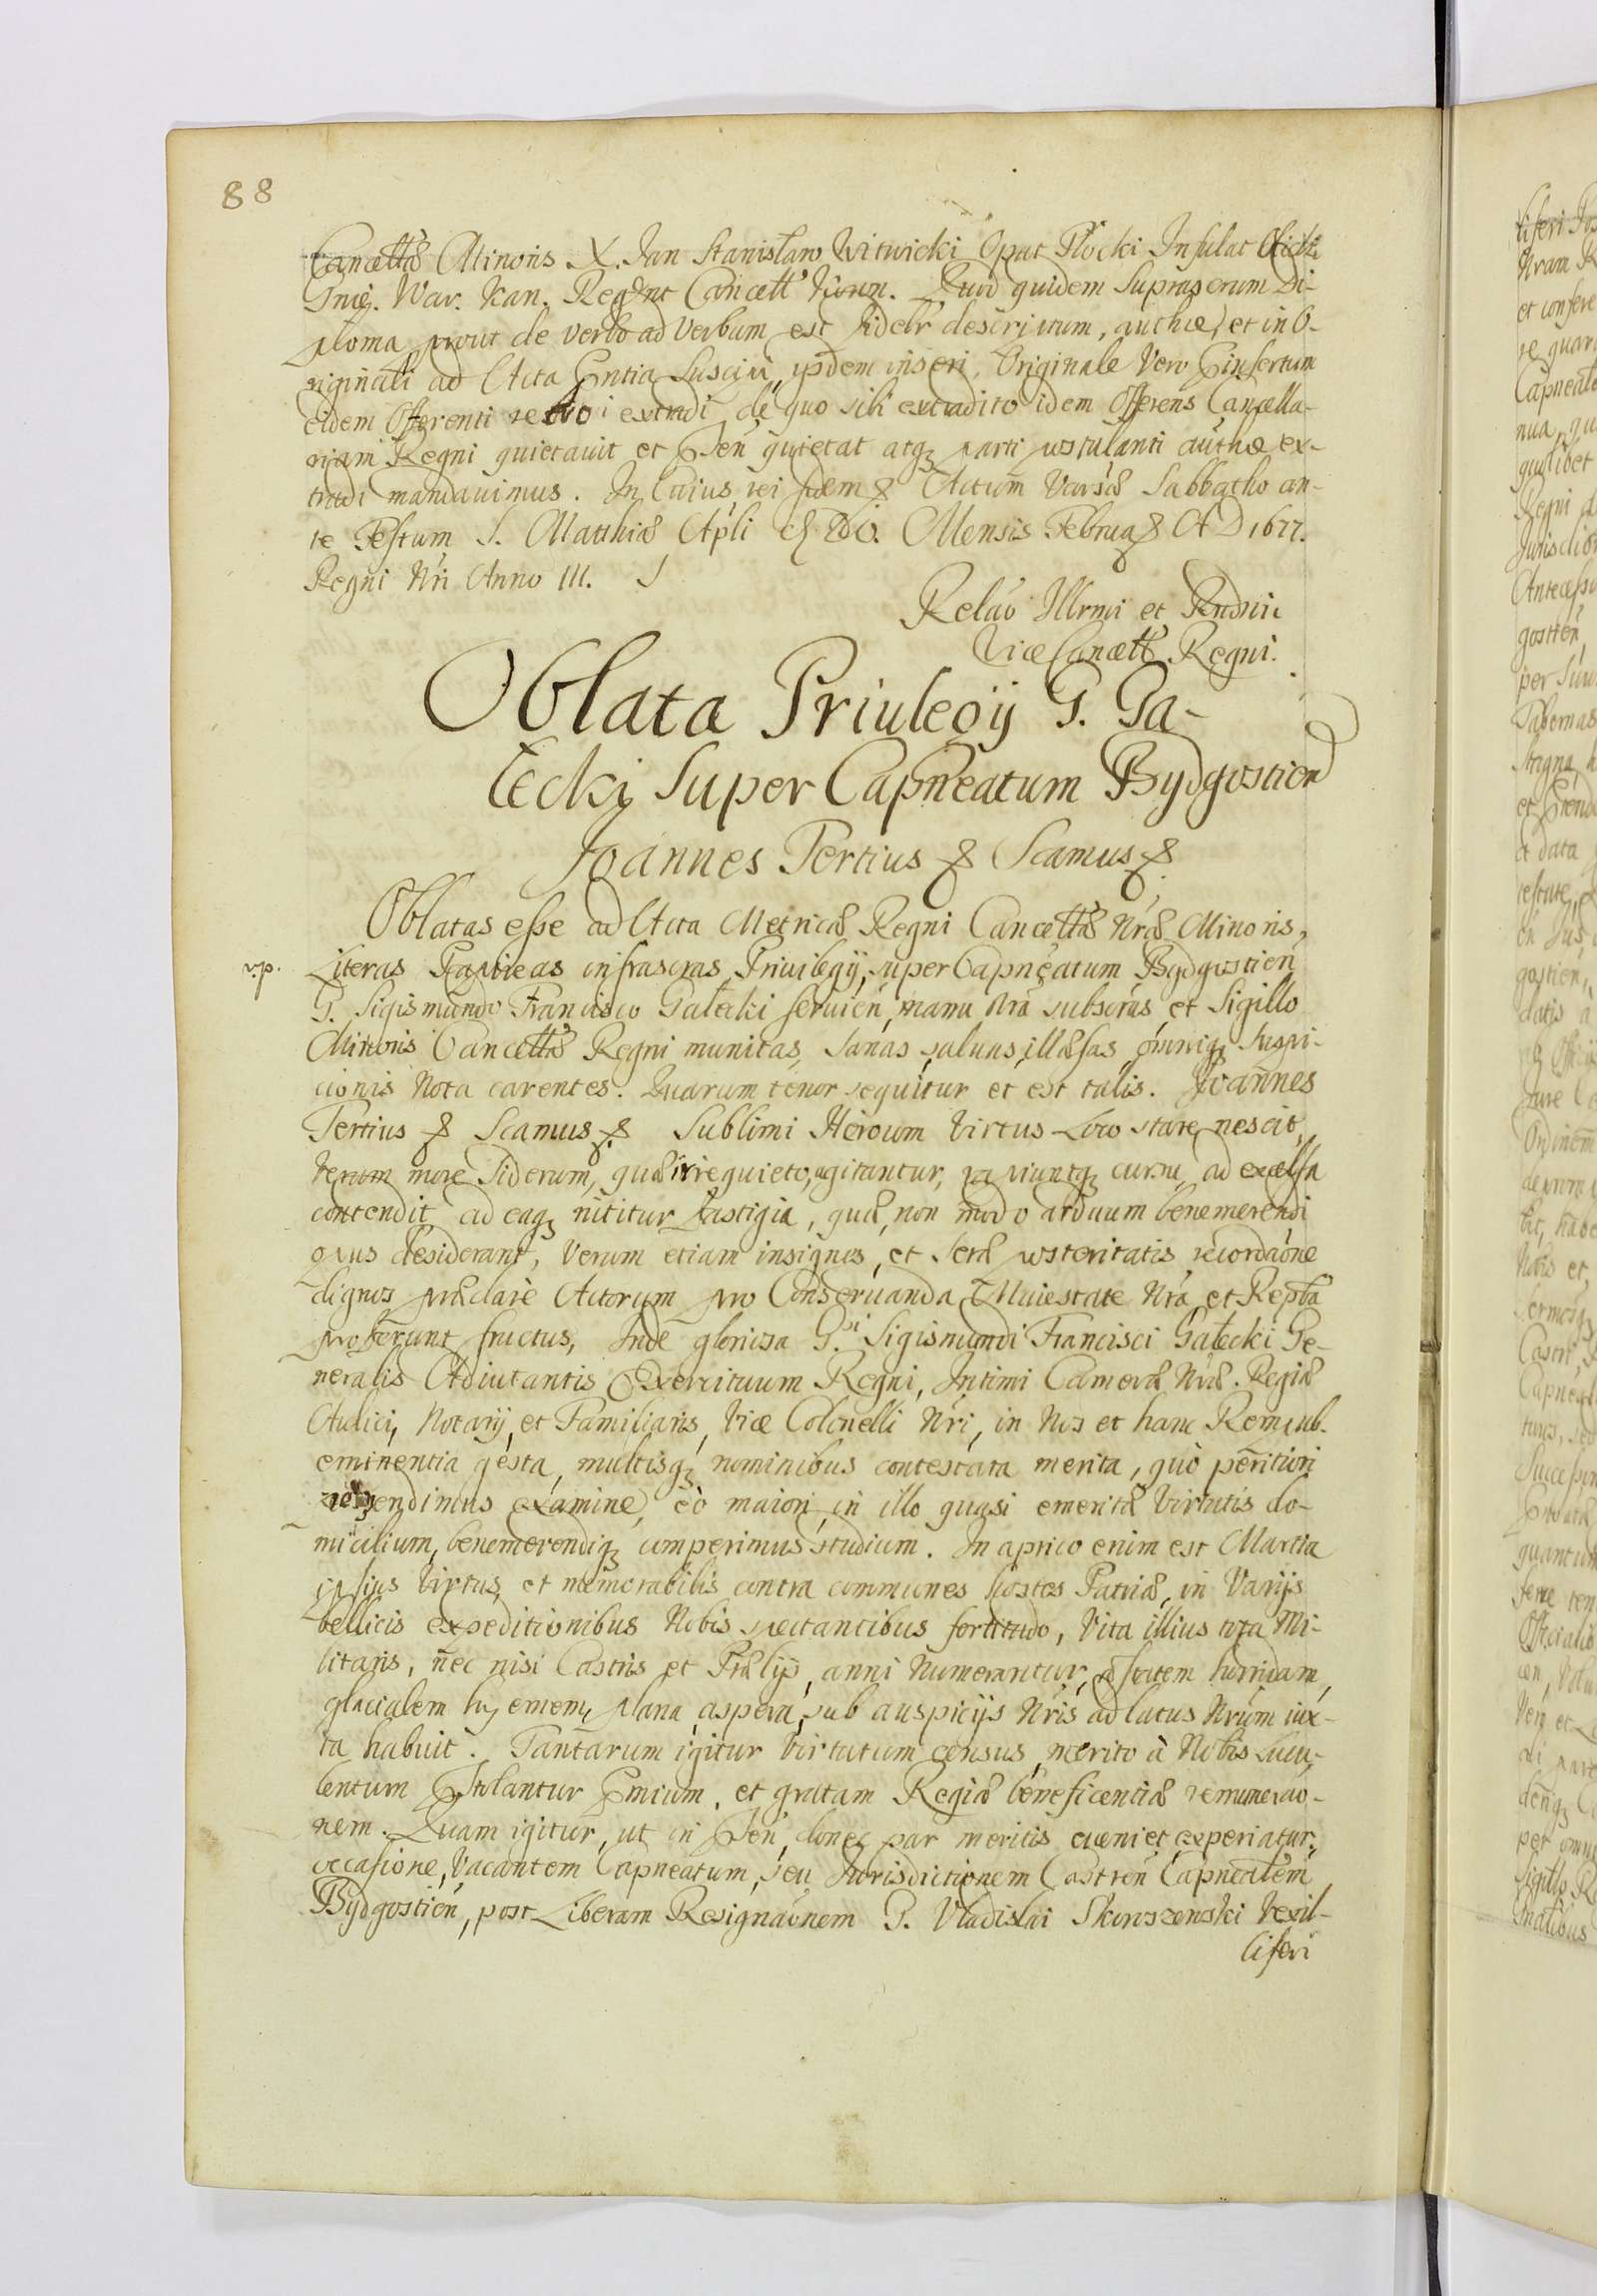 88
Cancellæ Minoris X. Jan Stanisław Witwicki Opat Płocki Infułat
Gnie. War. Kan. Regent Cancell Koron. Quod quidem Suprascrum Di-
ploma prout de verbo ad Verbum est fidelr descriptum, authce, et in O-
riginali ad Acta Pntia Suscipi, ijsdem inseri, Originale Vero Pinsertum
eidem Offerenti rursus extradi, de quo sibi extradito idem Offerens Cancella-
riam Regni quietavit et Pnten quietat atq parti postulanti authce ex-
tradi mandauimus. In Cuius rei fidem & Actum Varsæ Sabbatho an-
te Festum S. Matthiæ Apli Mensis Februa A D 1677.
Regni Nri Anno III.
Relao Illrmi et Rndmi
Vice Cancell Regni.
Oblata Priulegij G. Ga-
łecki Super Capneatum Bydgostien
Joannes Tertius & Scamus &
Oblatas esse ad Acta Metricæ Regni Cancellæ Nræ Minoris,
v.p. Literas Papireas infrascras Priuilegij, super Capneatum Bydgostien
G. Sigismundo Francisco Gałecki seruien, manu Nra subscras, et Sigillo
Minoris Cancellæ Regni munitas, sanas saluas illæsas omniq Suspi-
cionis Nota carentes. Quarum tenor sequitur et est talis. Joannes
Tertius & Scamus & Sublimi Heroum Virtus Loco stare nescit,
Verum more Siderum, quæ irrequieto, agitantur, cursu, ad excelsa
contendit, ad eaq nititur fastigia, quæ, non modo arduum benemerendi
opus desiderant, Verum etiam insignes, et seræ posteritatis recordaone
dignos præclare Actorum pro Conseruanda Maiestate Nra et Repba
proferunt fructus, Inde gloriosa G.si Sigismundi Francisci Gałecki Ge-
neralis Adiutantis Exercituum Regni, Intimi Cameræ Nræ Regiæ
Aulici, Notarij, et Familiaris, Vice Colonelli Nri, in Nos et hanc Rempub.
eminentia gesta, multisq nominibus contestata merita, quò peritiori
rependimus examine, eò maiori, in illo quasi emeritæ Virtutis do-
micilium, benemerendiq comperimus studium. In aprico enim est Martia
ipsius Virtus, et memorabilis contra communes hostes Patriæ, in Varijs
bellicis expeditionibus Nobis spectantibus fortitudo, Vita illius tota Mi-
litaris, nec nisi Castris et Prælijs, anni Numerantur, æstatem horridam,
glacialem hyemem, plana, aspera, sub auspicijs Nris ad latus Nrum iux-
ta habuit. Tantarum igitur Virtutum census, merito à Nobis Lucu-
lentum Pstolantur Pmium, et gratam Regiæ beneficentiæ remunerao-
nem. Quam igitur, ut in Pnten, donec par meritis eueniet, experiatur,
occasione, Vacantem Capneatum, seu Jurisdictionem Castren Capnealem
Bydgostien, post Liberam Resignaonem G. Vladislai Skoroszewski Vexil-
liferi